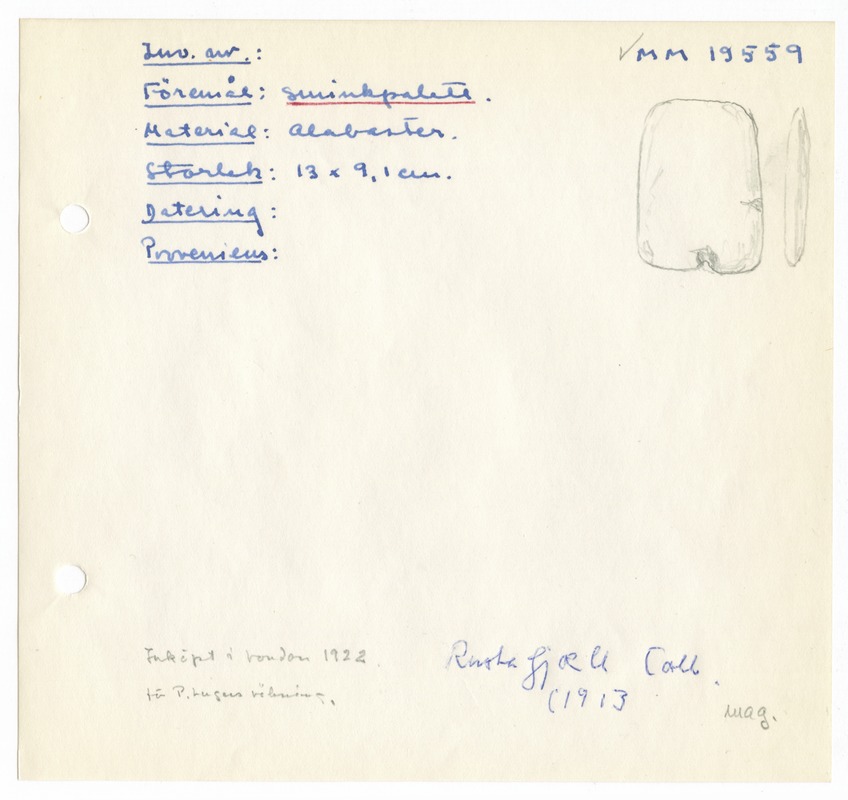 Inv. nr.: MM 19559
Föremål: sminkpalett.
Material: alabaster.
Storlek: 13 x 9,1 cm.
Datering:
Proveniens:
Inköpt i London 1922
för P. Lugns räkning.
Rustafjaell Coll.
(1913
mag.